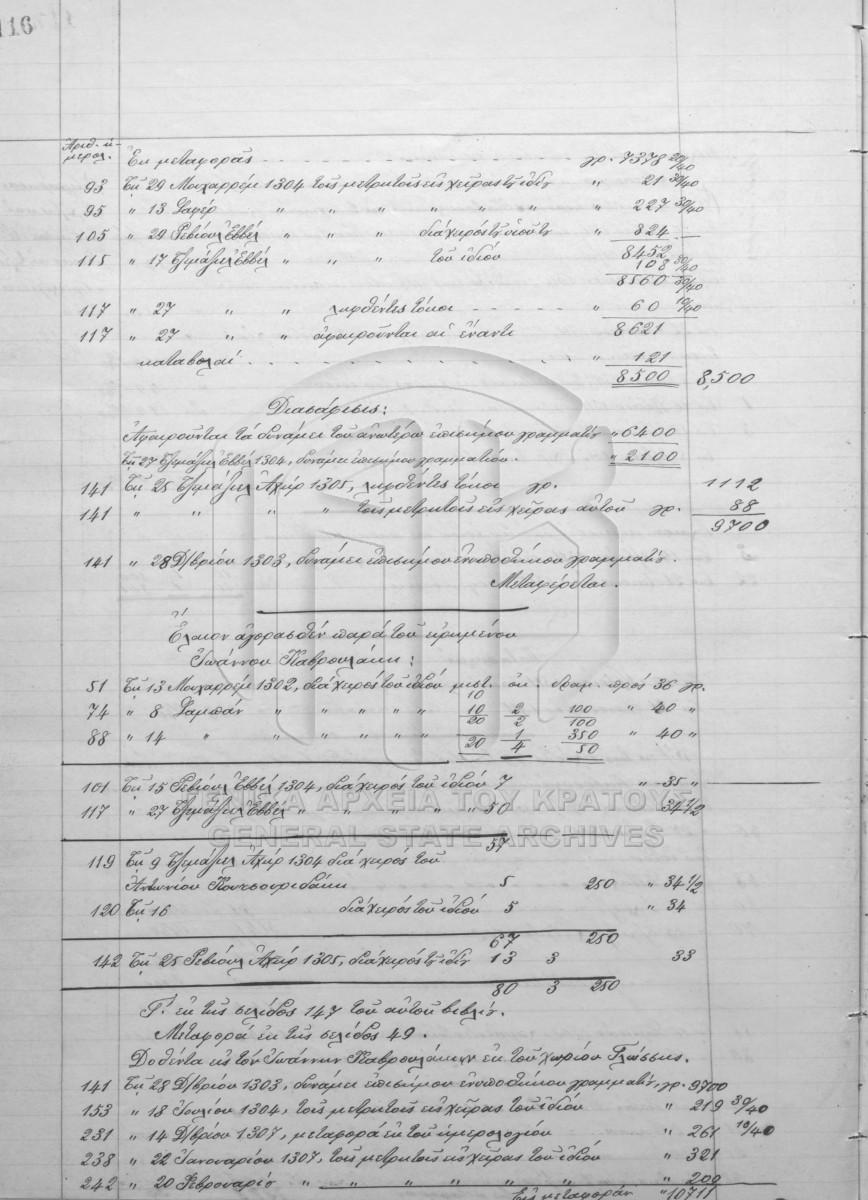 116
Ἀριθ. ἡ-
μερολ.
Ἐκ μεταφορᾶς - - - - - - - γρ. 7378 20/40
93 Τῇ 29 Μουχαρρέμ 1304 τοῖς μετρητοῖς εἰς χεῖρας τοῦ ἰδίου " 21 30/40
95 " 13 Σαφέρ " " " " " " " 227 30/40
105 " 29 Ρεβιοὺλ Ἐββὲλ " " " διὰ χειρὸς τοῦ υἱοῦ του " 824 -
115 " 17 Τζεμαζιὲλ Ἐββὲλ " " " τοῦ ἰδίου 8452
108 30/40
8560 30/40
117 " 27 " " ληφθέντες τόκοι - - - - - " 60 10/40
117 " 27 " " ἀφαιροῦνται αἱ ἔναντι 8621
καταβολαί - - - - - - - " 121
8500 8,500
Διασάφισις:
Ἀφαιροῦνται τὰ δυνάμει τοῦ ἀνωτέρω ἐπισήμου γραμματίου " 6400
Τῇ 27 Τζεμαζιὲλ Ἐββὲλ 1304, δυνάμει ἐπισήμου γραμματίου. " 2100
141 Τῇ 25 Τζεμαζιὲλ Ἀχὴρ 1305, ληφθέντες τόκοι γρ. 1112
141 " " " " τοῖς μετρητοῖς εἰς χεῖρας αὐτοῦ γρ. 88
9700
141 " 28 Δ/βρίου 1303, δυνάμει ἐπισήμου ἐνυποθήκου γραμματίου.
Μεταφέρεται.
Ἔλαιον ἀγορασθὲν παρὰ τοῦ εἰρημένου
Ἰωάννου Καβρουλάκη:
51 Τῇ 13 Μουχαρρέμ 1302, διὰ χειρὸς τοῦ ἰδίου μιστ. ὀκ. δραμ. πρὸς 36 γρ.
10
74 " 8 Σαμπὰν " " " " " 10 2 100 " 40 "
20 2 100
88 " 14 " " " " " " 1 350 " 40 "
20 4 50
101 Τῇ 15 Ρεβιοὺλ Ἐββὲλ 1304, διὰ χειρὸς τοῦ ἰδίου 7 " 35 "
117 " 27 Τζεμαζιὲλ Ἐββὲλ " " " " " 50 34 1/2
57
119 Τῇ 9 Τζεμαζιὲλ Ἀχὴρ 1304 διὰ χειρὸς τοῦ
Ἀντωνίου Κουτσουριδάκη 5 250 " 34 1/2
120 Τῇ 16 διὰ χειρὸς τοῦ ἰδίου 5 " 34
67 250
142 Τῇ 25 Ρεβιοὺλ Ἀχὴρ 1305, διὰ χειρὸς τοῦ ἰδίου 13 3 33
80 3 250
Γ. ἐκ τῆς σελίδος 147 τοῦ αὐτοῦ βιβλίου.
Μεταφορὰ ἐκ τῆς σελίδος 49.
Δοθέντα εἰς τὸν Ἰωάννην Καβρουλάκην ἐκ τοῦ χωρίου Γλώσσης.
141 Τῇ 28 Δ/βρίου 1303, δυνάμει ἐπισήμου ἐνυποθήκου γραμματίου, γρ. 9700
153 " 18 Ἰουλίου 1304, τοῖς μετρητοῖς εἰς χεῖρας τοῦ ἰδίου " 219 30/40
231 " 14 Δ/βρίου 1307, μεταφορὰ ἐκ τοῦ ἡμερολογίου " 261 10/40
238 " 22 Ἰανουαρίου 1307, τοῖς μετρητοῖς εἰς χεῖρας τοῦ ἰδίου " 321
242 " 20 Φεβρουαρίου " " " " " " " 200
Εἰς μεταφοράν " 10711
ΓΕΝΙΚΑ ΑΡΧΕΙΑ ΤΟΥ ΚΡΑΤΟΥΣ
GENERAL STATE ARCHIVES